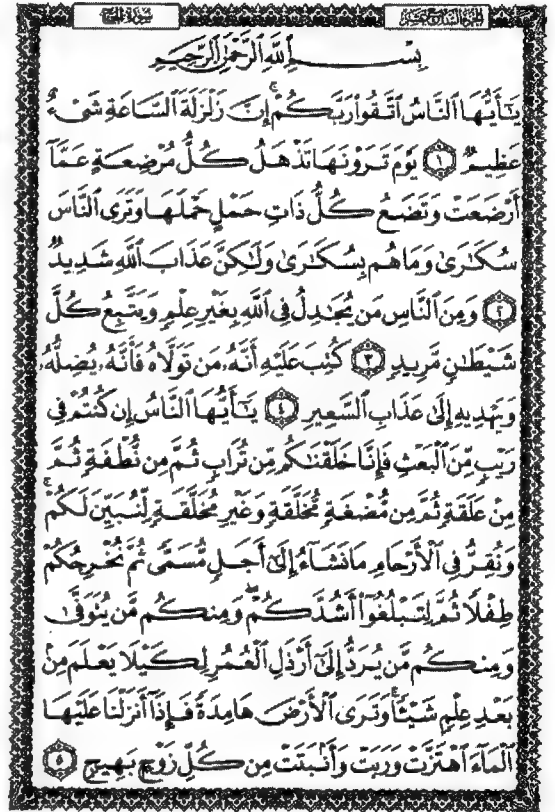 سورة الحج الجزء السابع عشر
بِسْمِ اللَّهِ الرَّحْمَٰنِ الرَّحِيمِ
يَٰٓأَيُّهَا ٱلنَّاسُ ٱتَّقُوا۟ رَبَّكُمْ ۚ إِنَّ زَلْزَلَةَ ٱلسَّاعَةِ شَىْءٌ
عَظِيمٌ ١ يَوْمَ تَرَوْنَهَا تَذْهَلُ كُلُّ مُرْضِعَةٍ عَمَّآ
أَرْضَعَتْ وَتَضَعُ كُلُّ ذَاتِ حَمْلٍ حَمْلَهَا وَتَرَى ٱلنَّاسَ
سُكَٰرَىٰ وَمَا هُم بِسُكَٰرَىٰ وَلَٰكِنَّ عَذَابَ ٱللَّهِ شَدِيدٌ
٢ وَمِنَ ٱلنَّاسِ مَن يُجَٰدِلُ فِى ٱللَّهِ بِغَيْرِ عِلْمٍ وَيَتَّبِعُ كُلَّ
شَيْطَٰنٍ مَّرِيدٍ ٣ كُتِبَ عَلَيْهِ أَنَّهُۥ مَن تَوَلَّاهُ فَأَنَّهُۥ يُضِلُّهُۥ
وَيَهْدِيهِ إِلَىٰ عَذَابِ ٱلسَّعِيرِ ٤ يَٰٓأَيُّهَا ٱلنَّاسُ إِن كُنتُمْ فِى
رَيْبٍ مِّنَ ٱلْبَعْثِ فَإِنَّا خَلَقْنَٰكُم مِّن تُرَابٍ ثُمَّ مِن نُّطْفَةٍ ثُمَّ
مِنْ عَلَقَةٍ ثُمَّ مِن مُّضْغَةٍ مُّخَلَّقَةٍ وَغَيْرِ مُخَلَّقَةٍ لِّنُبَيِّنَ لَكُمْ ۚ
وَنُقِرُّ فِى ٱلْأَرْحَامِ مَا نَشَآءُ إِلَىٰٓ أَجَلٍ مُّسَمًّى ثُمَّ نُخْرِجُكُمْ
طِفْلًا ثُمَّ لِتَبْلُغُوٓا۟ أَشُدَّكُمْ ۖ وَمِنكُم مَّن يُتَوَفَّىٰ
وَمِنكُم مَّن يُرَدُّ إِلَىٰٓ أَرْذَلِ ٱلْعُمُرِ لِكَيْلَا يَعْلَمَ مِنۢ
بَعْدِ عِلْمٍ شَيْـًٔا ۚ وَتَرَى ٱلْأَرْضَ هَامِدَةً فَإِذَآ أَنزَلْنَا عَلَيْهَا
ٱلْمَآءَ ٱهْتَزَّتْ وَرَبَتْ وَأَنۢبَتَتْ مِن كُلِّ زَوْجٍۭ بَهِيجٍ ٥